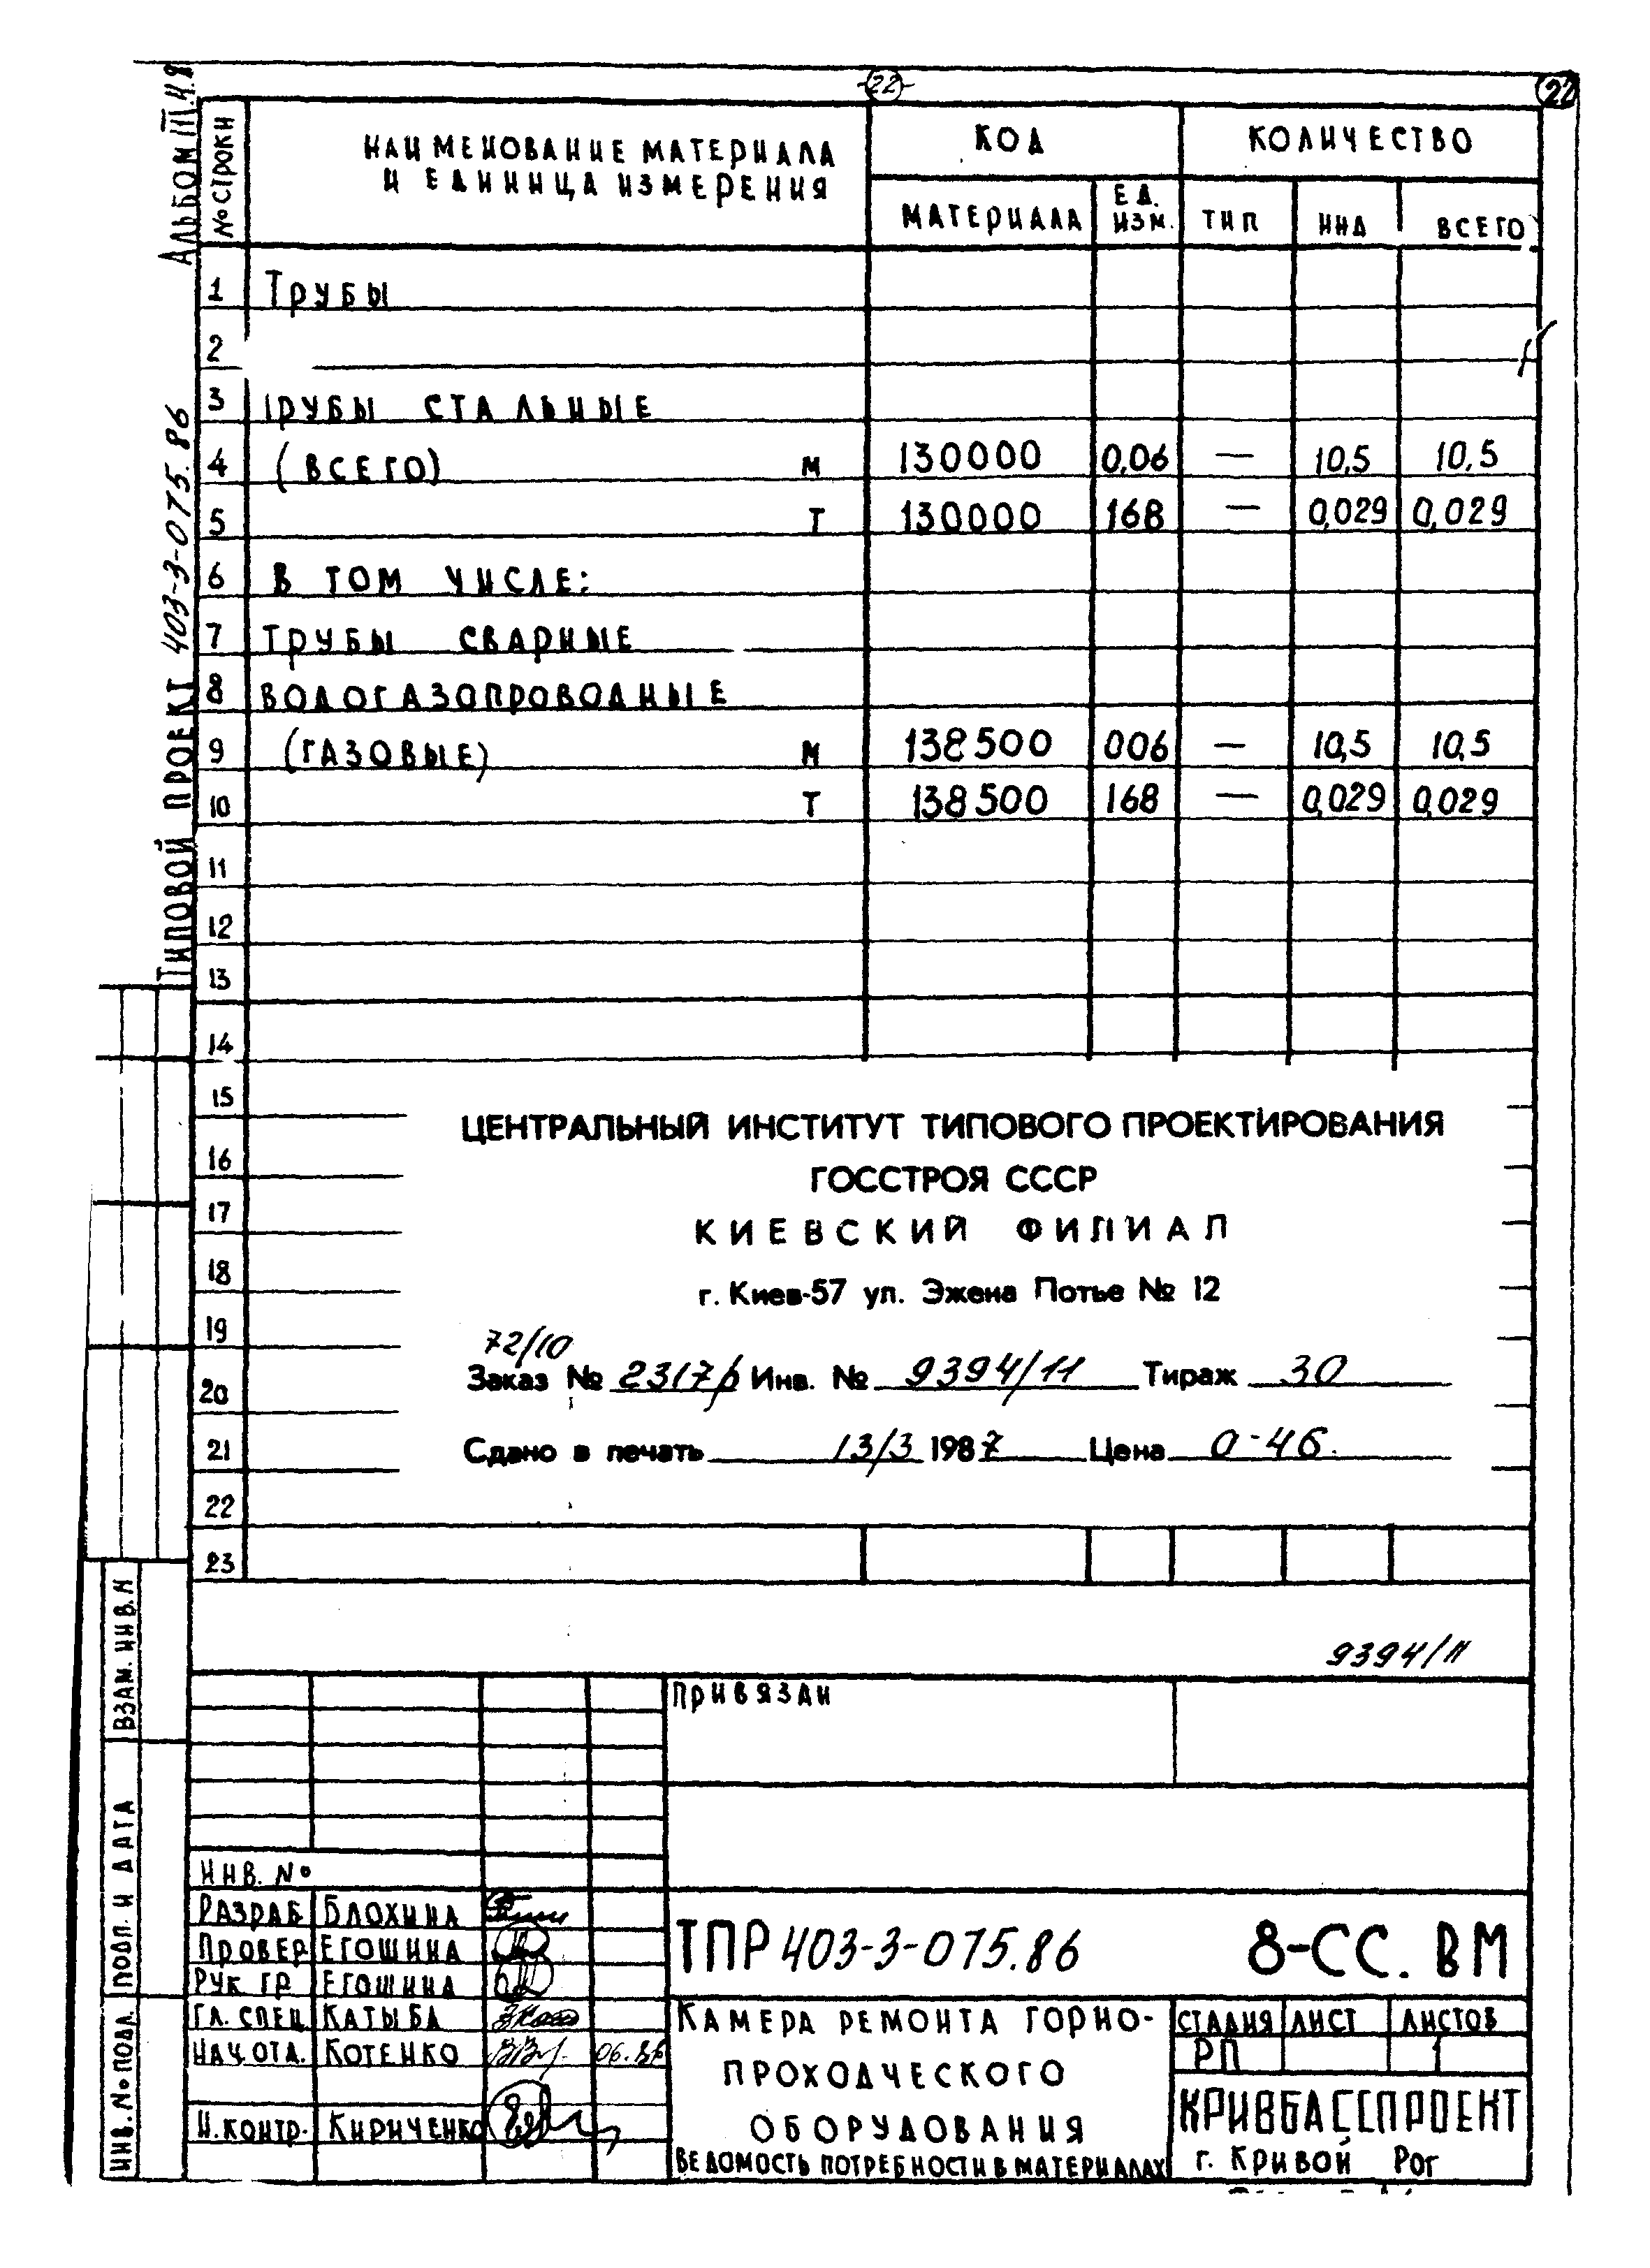 -22-
22
Альбом III ч.8
Типовой проект 403-3-075.86
№ строки
Наименование материала
и единица измерения
Код
Количество
материала
Ед. изм.
тип
инд
всего
1 Трубы
2
3 Трубы стальные
4 (всего) м 130000 0,06 — 10,5 10,5
5 т 130000 168 — 0,029 0,029
6 в том числе:
7 Трубы сварные
8 водогазопроводные
9 (газовые) м 138500 006 — 10,5 10,5
10 т 138500 168 — 0,029 0,029
11
12
13
14
15
16
17
18
19
20
21
22
23
ЦЕНТРАЛЬНЫЙ ИНСТИТУТ ТИПОВОГО ПРОЕКТИРОВАНИЯ
ГОССТРОЯ СССР
КИЕВСКИЙ ФИЛИАЛ
г. Киев-57 ул. Эжена Потье № 12
72/10
Заказ № Инв. № 9394/11 Тираж 30
Сдано в печать 13/3 1987 Цена 0-46.
9394/11
Привязан
Взам. инв. №
Подп. и дата
Инв. № подл.
Инв. №
Разраб Блохина
Провер Егошина
Рук гр Егошина
Гл. спец Катыба
Нач. отд. Котенко 06.86
Н. контр. Кириченко
ТПР 403-3-075.86 8-СС. ВМ
Камера ремонта горно-
проходческого
оборудования
Ведомость потребности в материалах
Стадия Лист Листов
РП 1
КРИВБАССПРОЕКТ
г. Кривой Рог